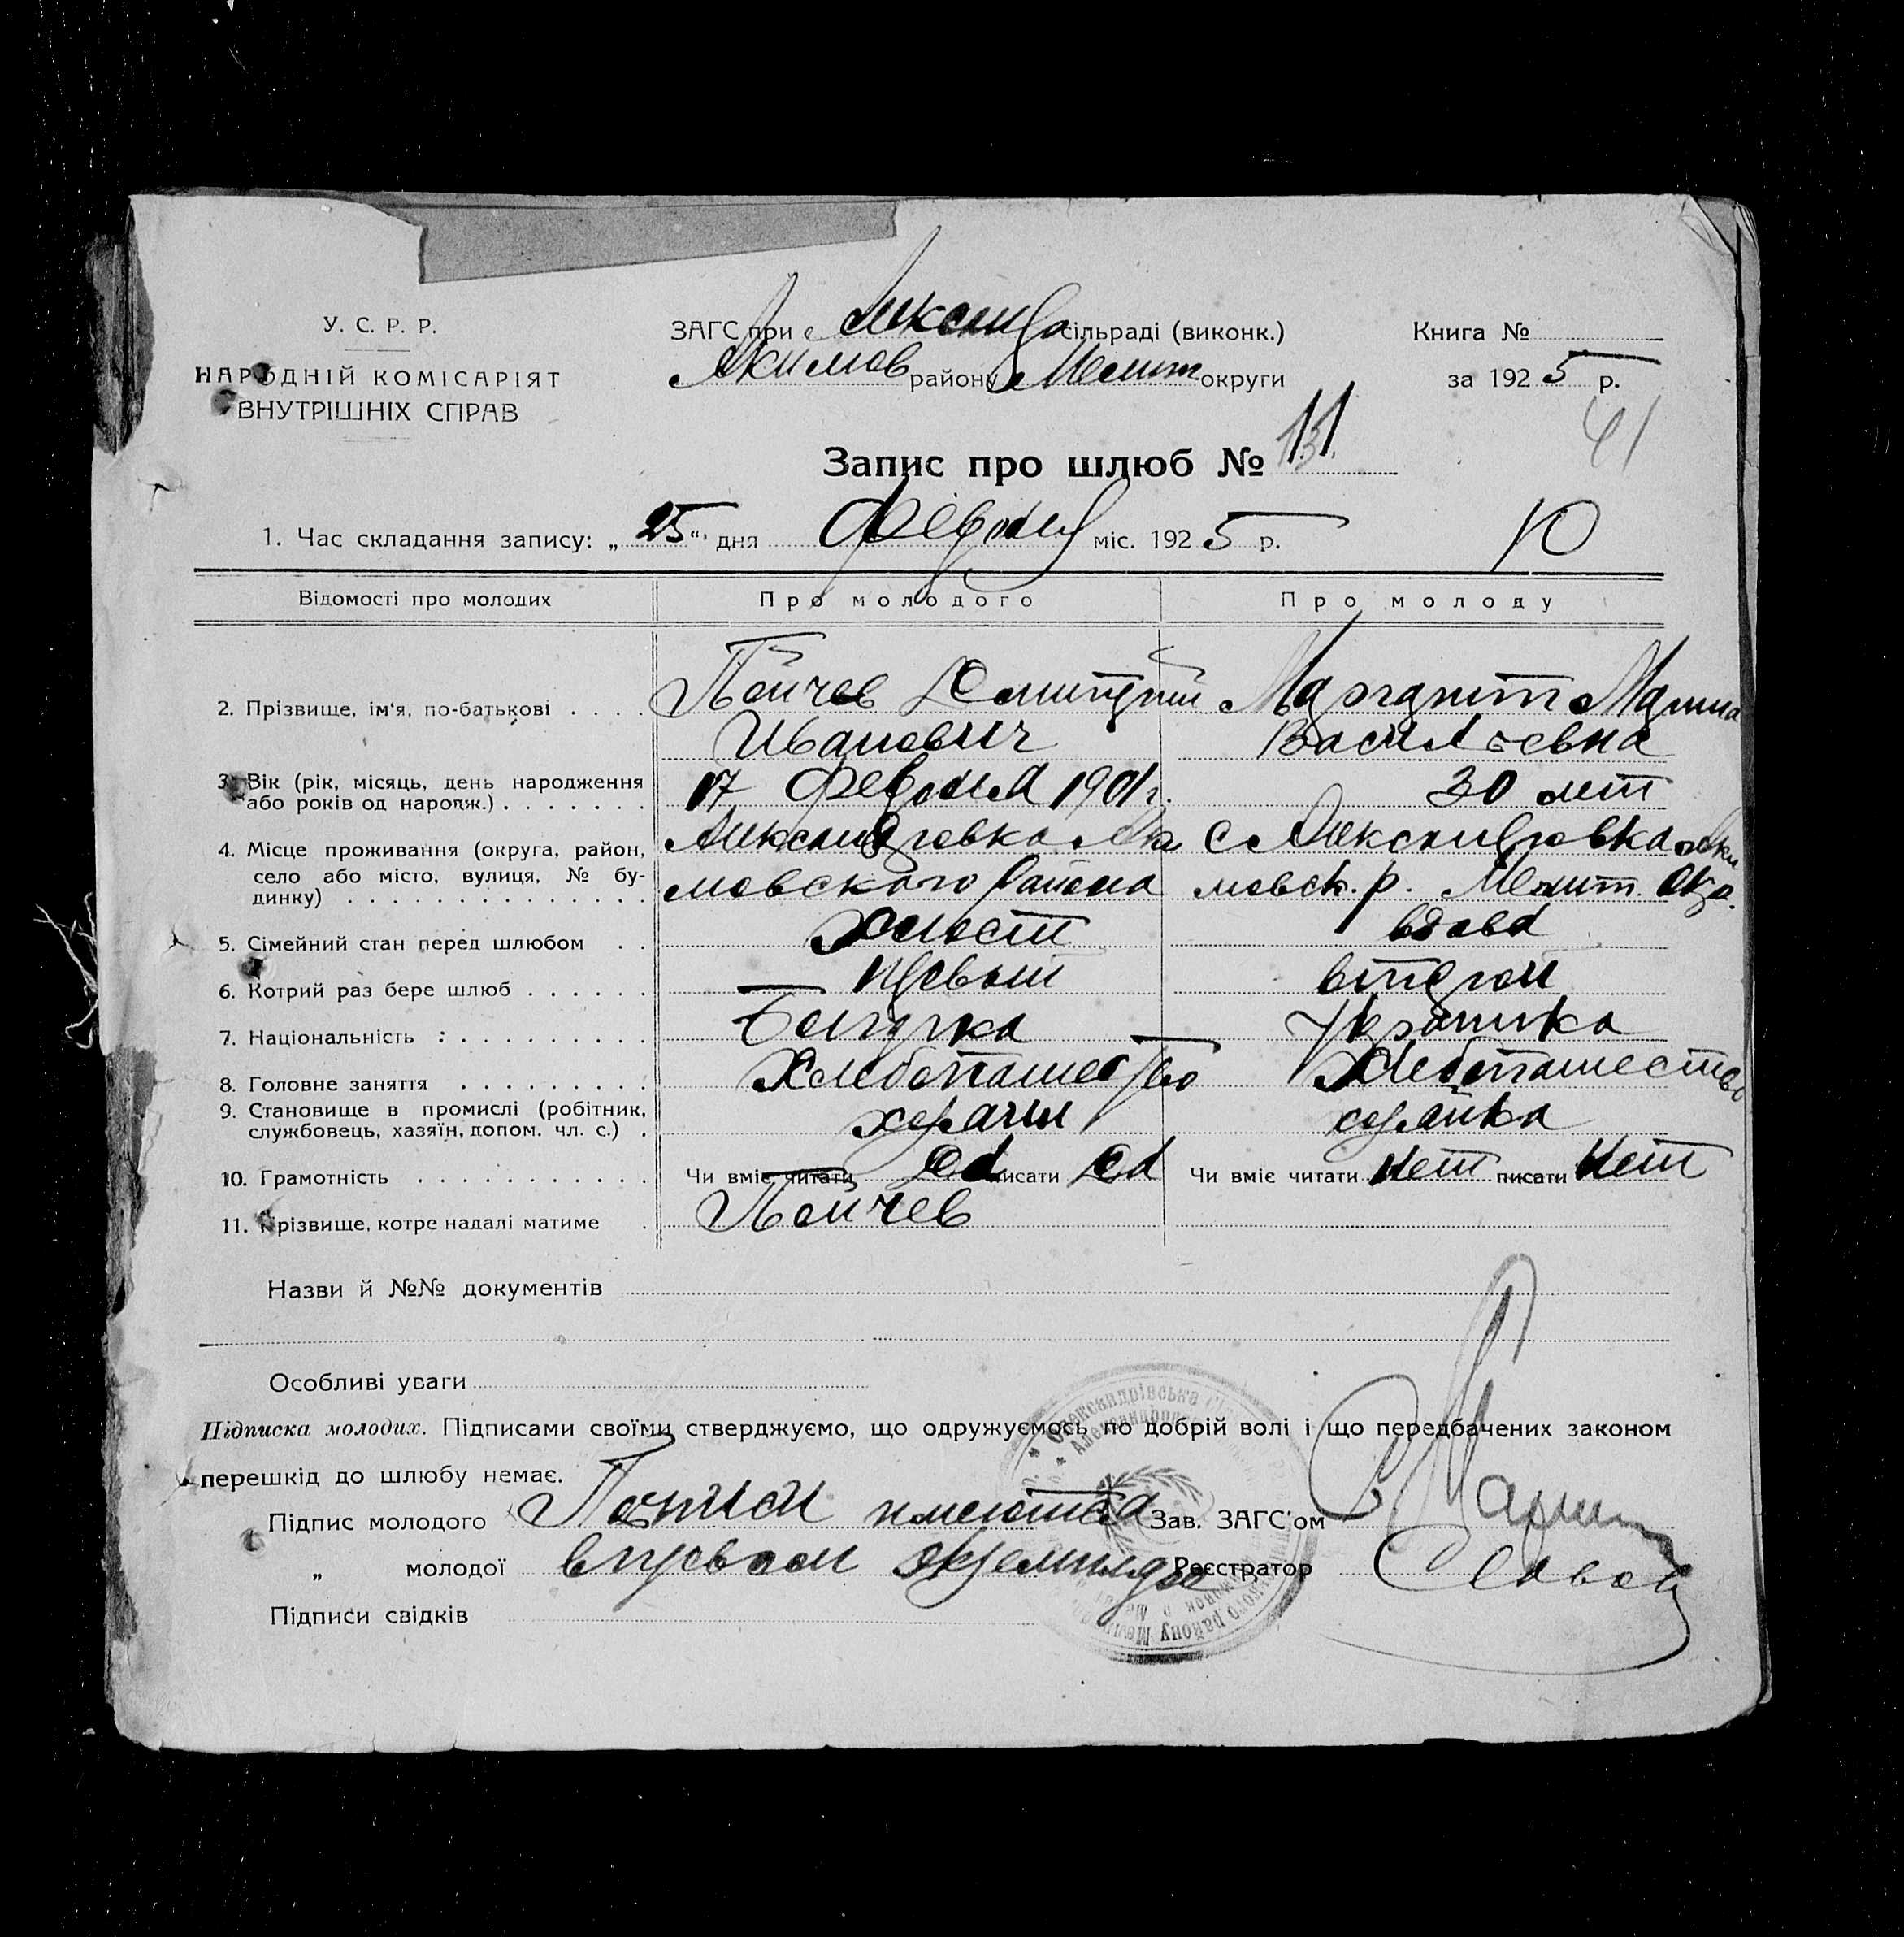 У. С. Р. Р.
НАРОДНІЙ КОМІСАРІЯТ
ВНУТРІШНІХ СПРАВ
ЗАГС при Александро сільраді (виконк.)
Акимов району Мелит округи
Книга №
за 1925 р.
41
Запис про шлюб № 11
1. Час складання запису: „25“ дня Февраля міс. 1925 р.
10
Відомості про молодих Про молодого Про молоду
2. Прізвище, ім'я, по-батькові . . . . Пейчев Дмитрий Маргарит Марина
Иванович Васильевна
3. Вік (рік, місяць, день народження або років од народж.) . . . . . . . 17 Февраля 1901 г. 30 лет
4. Місце проживання (округа, район, Александровка Аки с Александровка Аки
село або місто, вулиця, № бу- мовского района мовск. р. Мелит. Окр.
динку) . . . . . . . . . . . . . .
5. Сімейний стан перед шлюбом . . холост вдова
6. Котрий раз бере шлюб . . . . . . первый второй
7. Національність : . . . . . . . . . Болгарка Украинка
8. Головне заняття . . . . . . . . . Хлебопашество Хлебопашество
9. Становище в промислі (робітник, службовець, хазяїн, допом. чл. с.) . хозяин хозяйка
10. Грамотність . . . . . . . . . . . Чи вміє читати Да писати Да Чи вміє читати Нет писати Нет
11. Прізвище, котре надалі матиме . Пейчев
Назви й №№ документів
Особливі уваги
Підписка молодих. Підписами своїми стверджуємо, що одружуємось по добрій волі і що передбачених законом
перешкід до шлюбу немає.
Підпис молодого Подписи имеются Зав. ЗАГС'ом
„ молодої в первом экземпляре Реєстратор
Підписи свідків